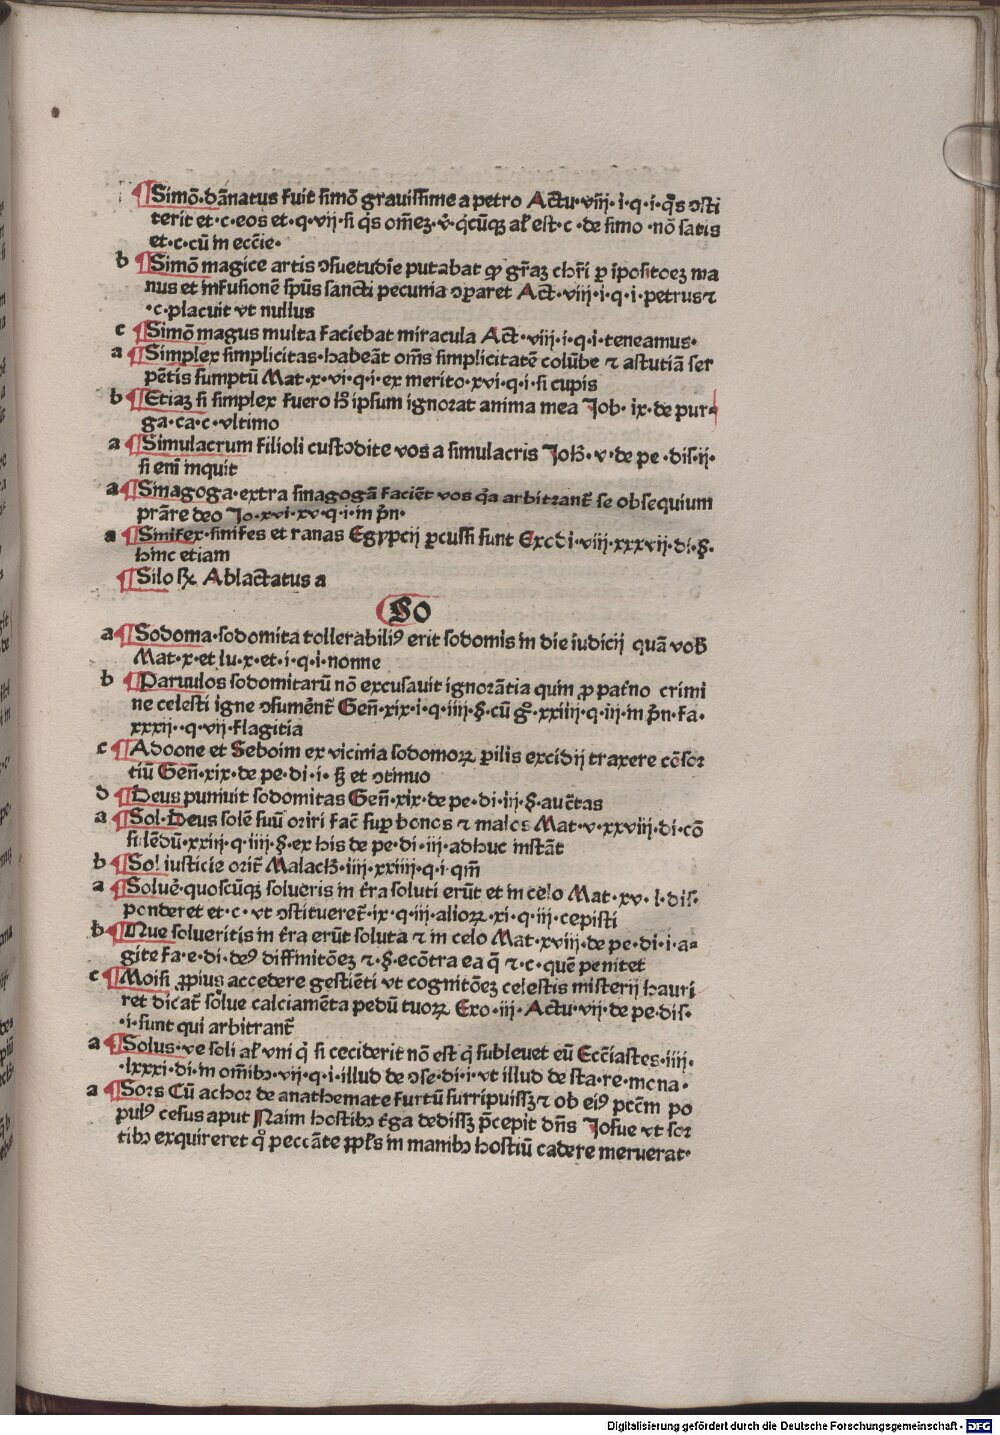 ¶Simō·dānatus fuit simō grauissime a petro Actu·viij·i·q·i·q̄s ɔsti
terit et·c·eos et·q·vij·si q̇s om̄eꝫ·v̇·q̇cūqꝫ al̓ est·c·de simo·nō satis
et·c·cū in ecc̄ie·
b ¶Simō magice artis ɔsuetudīe putabat ꝙ gr̄aꝫ chr̄i ꝑ īpositoeꝫ ma
nus et infusionē sp̄us sancti pecunia ɔꝑaret Act·viij·i·q·i·petrus ⁊
·c·placuit vt nullus
c ¶Simō magus multa faciebat miracula Act·viij·i·q·i·teneamus·
a ¶Simplex simplicitas·habeāt om̄s simplicitatē colūbe ⁊ astutiā ser
pētis sumptū Mat·x·vi·q·i·ex merito·xvi·q·i·si cupis
b ¶Etiaꝫ si simplex fuero h̓ ipsum ignorat anima mea Job·ix·de pur⸗
ga·ca·c·vltimo
a ¶Simulacrum filioli custodite vos a simulacris Joh̄·v·de pe·dis·ij·
si enī inquit
a ¶Sinagoga·extra sinagogā faciēt vos q̇a arbitrant̄ se obsequium
prāre deo Jo·xvi·xv·q·i·in p̄n·
a ¶Sinifex·sinifes et ranas Egypcij ꝑcussi sunt Exodi·viij·xxxvij·di·§·
hinc etiam
¶Silo ꝶ Ablactatus a
So
a ¶Sodoma·sodomita tollerabiliꝰ erit sodomis in die iudicij quā vob̄
Mat·x·et lu·x·et·i·q·i·nonne
b ¶Paruulos sodomitarū nō excusauit ignorātia quin ꝓ pat̓no crimi
ne celesti igne ɔsumēnt̄ Geñ·xix·i·q·iiij·§·cū gͦ·xxiiij·q·iij·in p̄n·fa·
xxxij··q·vij·flagitia
c ¶Adoone et Seboim ex vicinia sodomoꝝ ꝑilis excidij traxere cōsor
tiū Geñ·xix·de pe·di·i·ꝟ et ɔtinuo
d ¶Deus puniuit sodomitas Geñ·xix·de pe·di·iij·§·auc̄tas
a ¶Sol·Deus solē suū oriri fac̄ suꝑ bonos ⁊ malos Mat·v·xxviij·di·cō
sulēdū·xxiij·q·iiij·§·ex his de pe·di·iij·adhuc instāt
b ¶Sol iusticie orit̄ Malach̄·iiij·xxiiij·q·i·qm̄
a ¶Soluē·quoscūqꝫ solueris in t̓ra soluti erūt et in celo Mat·xv·l·dis·
ponderet et·c·vt ɔstitueret̄·ix·q·iij·alioꝝ·xi·q·iij·cepisti
b ¶Que solueritis in t̓ra erūt soluta ⁊ in celo Mat·xviij·de pe·di·i·a⸗
gite fa·e·di·deꝰ diffinitōeꝫ ⁊·§·ecōtra ea q̄ ⁊·c·quē penitet
c ¶Moisi ꝓpius accedere gestiēti vt cognitōeꝫ celestis misterij hauri
ret dicat̄ solue calciamēta pedū tuoꝝ Exo·iij·Actu·vij·de pe·dis·
·i·sunt qui arbitrant̄
a ¶Solus·ve soli al̓ vni q̇ si ceciderit nō est q̇ subleuet eū Ecc̄iastes·iiij·
·lxxxi·di·in om̄ibꝫ·vij·q·i·illud de ɔse·di·i·vt illud de sta·re·mona·
a ¶Sors Cū achor de anathemate furtū surripuissꝫ ⁊ ob eiꝰ pctm̄ po
pulꝰ cesus aput Naim hostibꝫ t̓ga dedissꝫ p̄cepit dn̄s Josue vt sor
tibꝫ exquireret qͥ peccāte ꝓpl̓s in manibꝫ hostiū cadere meruerat·
Digitalisierung gefördert durch die Deutsche Forschungsgemeinschaft - DFG